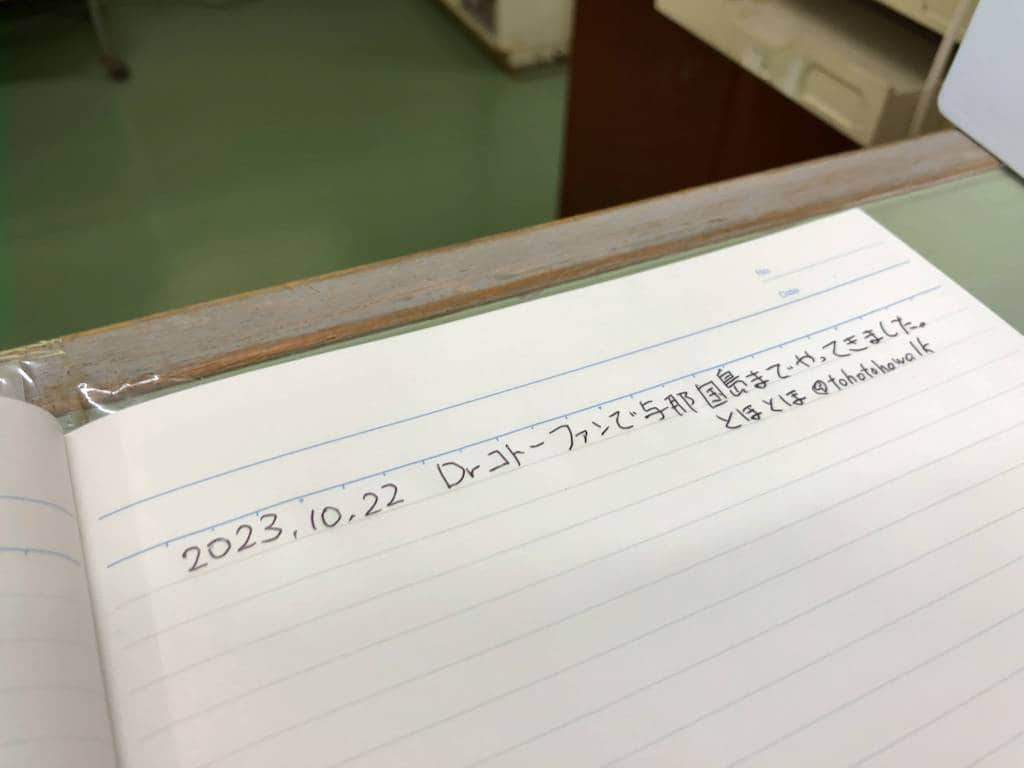 No.
Date
2023.10.22 Drコトーファンで与那国島までやってきました。
とほとほ @tohotohowalk